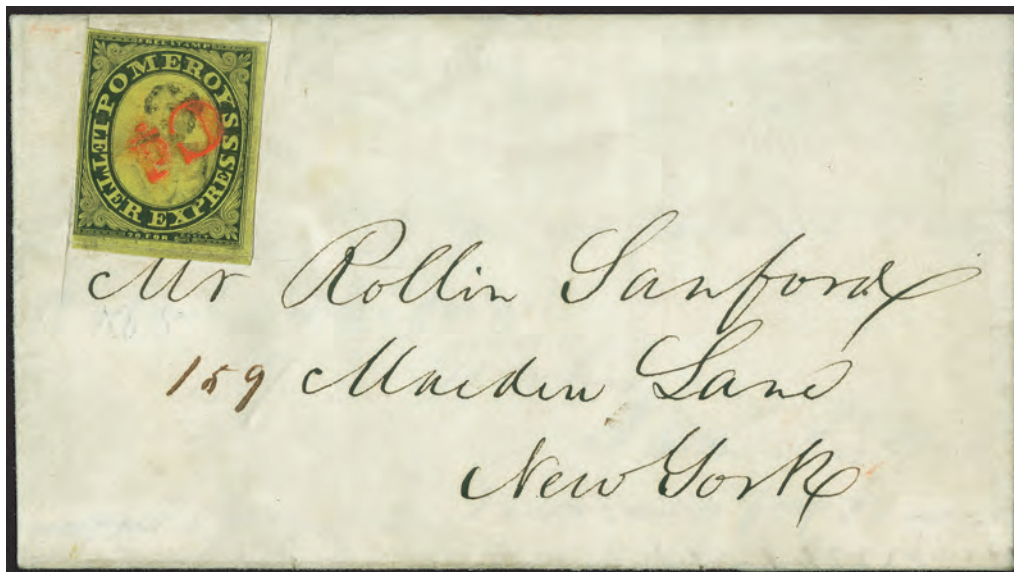 FREE STAMP
POMEROYS
LETTER EXPRESS
20 FOR
Mr Rollin Sanford
159 Maiden Lane
New York